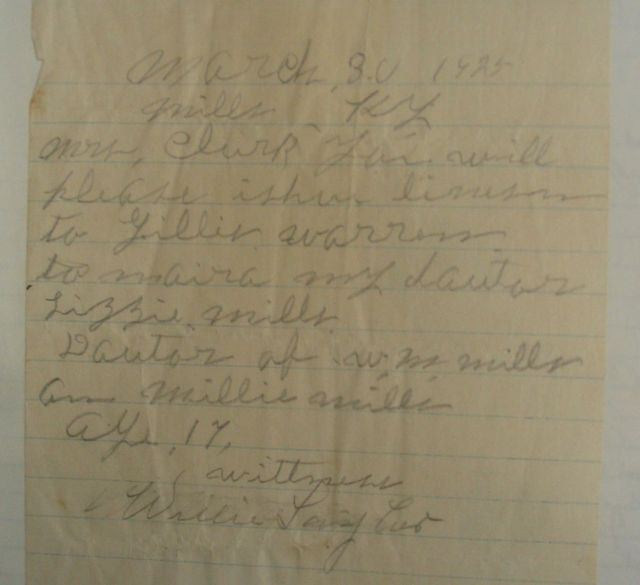 March, 30 1925
mills KY
mrs, Clerk you will
please ishue linsen
to Gillis warren
to maira my dautor
Lizzie mills
Dautor of w,m mills
an millie mills
age, 17,
wittness
Willie Saylor